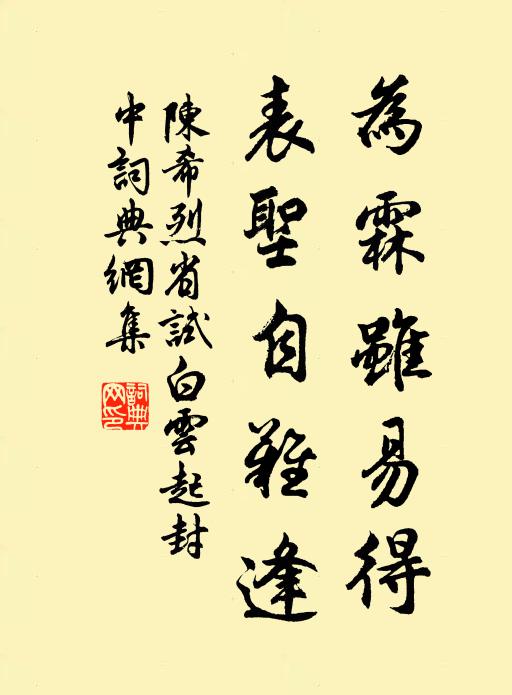 為霖雖易得
表聖自難逢
陳希烈省試白雲起封
中詞典網集
詞典网印